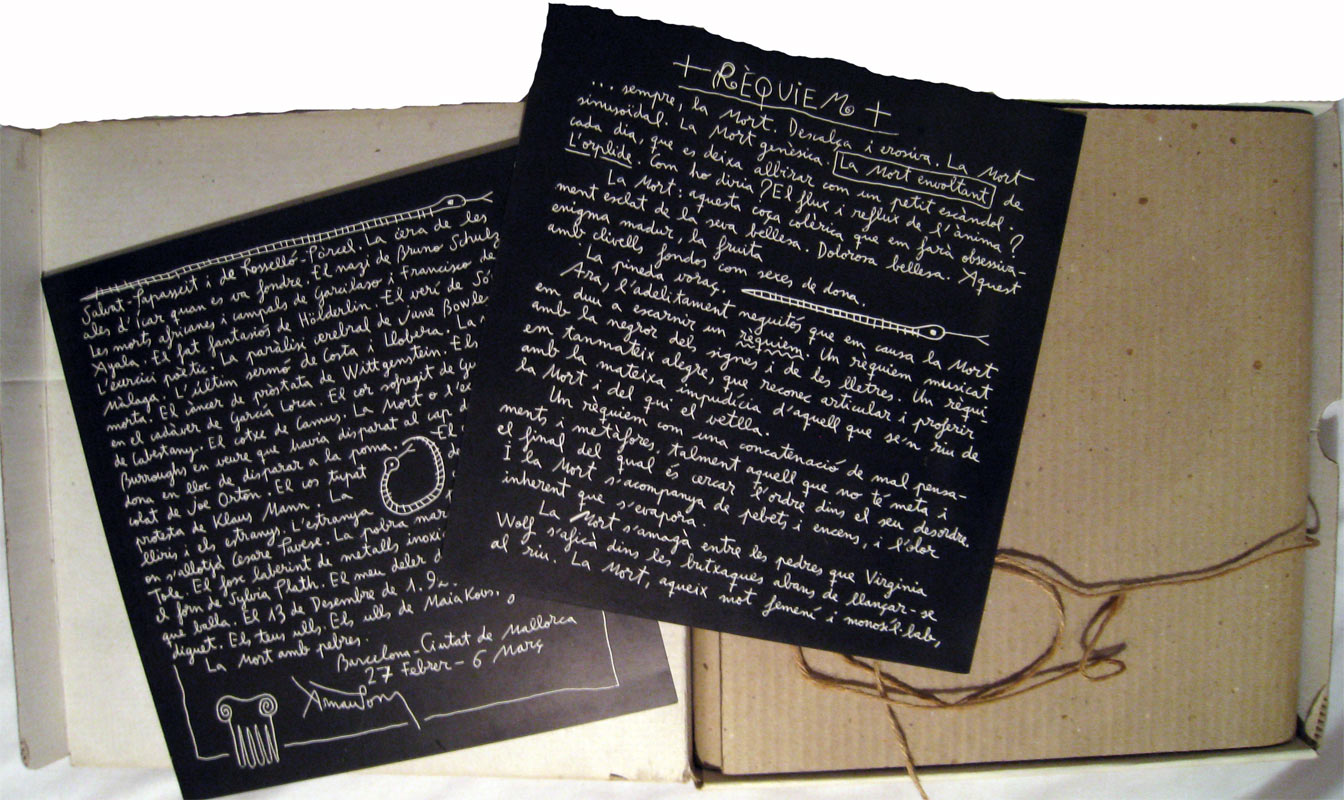 + RÈQUIEM +
... sempre, la Mort. Descalça i erosiva. La Mort
sinusoïdal. La Mort genèsica. La Mort envoltant de
cada dia, que es deixa albirar com un petit escàndol.
L'orplide. Com ho diria? El flux i reflux de l'ànima?
La Mort: aquesta cosa colèrica que em farà obsessiva-
ment esclat de la seva bellesa. Dolorosa bellesa. Aquest
enigma madur, la fruita
amb clivells fondos com sexes de dona.
La pineda voras.
Ara, l'adelitament neguitós que em causa la Mort
em duu a escarnir un rèquiem. Un rèquiem musicat
amb la negror dels signes i de les lletres. Un rèqui-
em tanmateix alegre, que reconec articular i proferir
amb la mateixa impudícia d'aquell que se'n riu de
la Mort i del qui el vetlla.
Un rèquiem com una concatenació de mal pensa-
ments i metàfores, talment aquell que no té meta i
el final del qual és cercar l'ordre dins el seu desordre.
I la Mort s'acompanya de pebets i encens, i l'olor
inherent que s'evapora.
La Mort s'amagà entre les pedres que Virginia
Wolf s'aficà dins les butxaques abans de llançar-se
al riu. La Mort, aqueix mot femení i monosíl·lab,
Salvat-Papasseit i de Rosselló-Pòrcel. La cera de les
ales d'Ícar quan es va fondre. El nazi de Bruno Schulz
Les morts africanes i campals de Garcilaso i Francisco de
Ayala. El fat fantasiós de Hölderlin. El verí de Só
L'eurici poètic. La paràlisi cerebral de Jane Bowle
Màlaga. L'últim sermó de Costa i Llobera. La
morta. El càncer de pròstata de Wittgenstein. Els
en el cadàver de García Lorca. El cor sofregit de Gu
de Cabestany. El cotxe de Camus. La Mort o l'e
Burroughs en veure que havia disparat al cap d
dona en lloc de disparar a la poma. El
colat de Joe Orton. El cos tupat d
protesta de Klaus Mann. La
lliris i els estranys. L'estranya
on s'allotjà Cesare Pavese. La pobra mar
Tole. El fosc laberint de metalls inoxi
el forn de Sylvia Plath. El meu deler d
què balla. El 13 de Desembre de 1.92.
diguet. Els teus ulls. Els ulls de MaiaKovs.
La Mort amb pebres.
Barcelona-Ciutat de Mallorca
27 Febrer - 6 Març
Arnau Pons